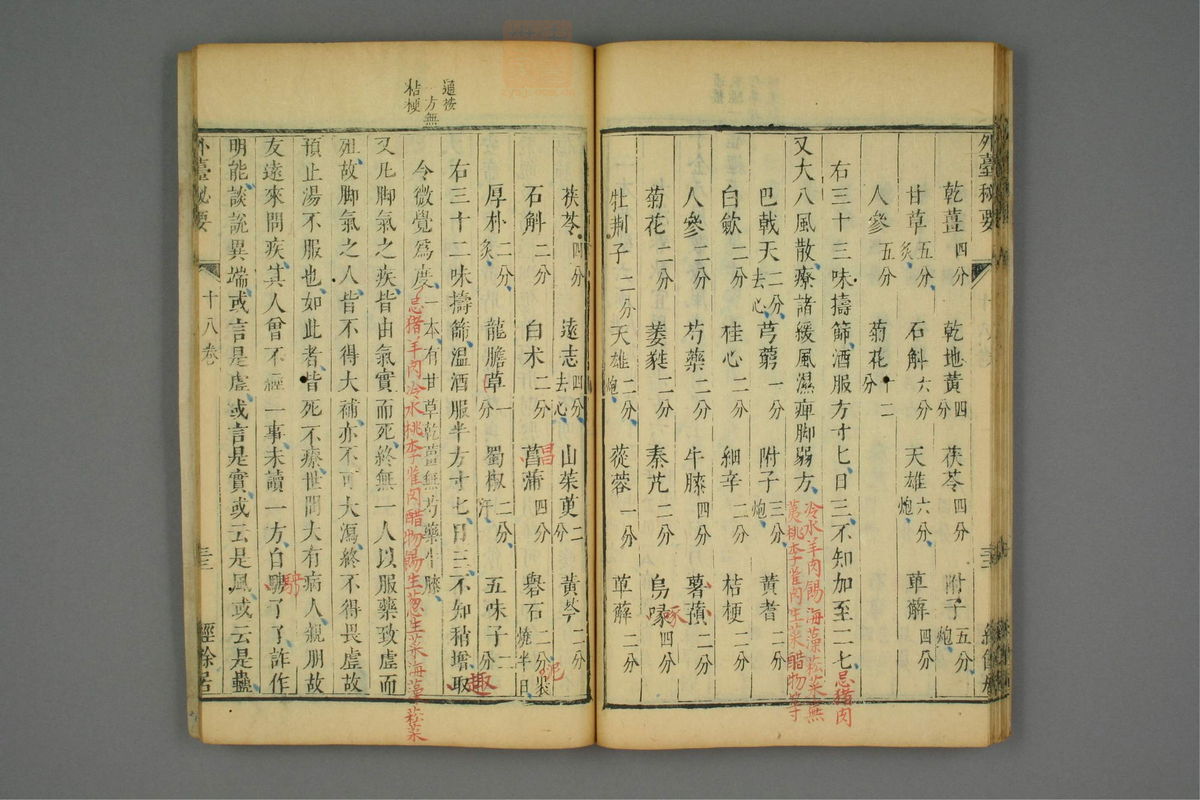 外臺秘要
十八卷
乾薑四分 乾地黃四分 茯苓四分 附子五分炮
甘草五分炙 石斛六分 天雄六分炮 萆薢四分
人參五分 菊花二分
右三十三味擣篩酒服方寸匕日三不知加至二七忌猪肉
冷水羊肉餳海藻菘菜蕪
荑桃李雀肉生菜醋物等
又大八風散療諸緩風濕痺脚弱方
巴戟天二分去心 芎藭一分 附子三分炮 黃耆二分
白歛二分 桂心二分 細辛二分 桔梗二分
人參二分 芍藥二分 牛膝四分 薯蕷二分
菊花二分 萎蕤二分 秦艽二分 烏喙四分
啄
牡荆子二分 天雄二分炮 蓯蓉一分 萆薢二分
茯苓四分 遠志四分去心 山茱萸二分 黃芩二分
石斛二分 白术二分 菖蒲四分 礜石二分泥裹燒半日
昌
厚朴二分炙 龍膽草一分 蜀椒二分汗 五味子二分
右三十二味擣篩溫酒服半方寸匕日三不知稍增取
趣
令微覺爲度一本有甘草乾薑無芍藥牛膝
忌猪羊肉冷水桃李雀肉醋物餳生葱生菜海藻菘菜
通按
一方無
桔梗
又凡脚氣之疾皆由氣實而死終無一人以服藥致虛而
殂故脚氣之人皆不得大補亦不可大瀉終不得畏虛故
預止湯不服也如此者皆死不療世間大有病人親朋故
友遠來問疾其人曾不經一事未讀一方自騁了了詐作
騁
明能談說異端或言是虛或言是實或云是風或云是蠱
外臺秘要
十八卷
三三
經餘居